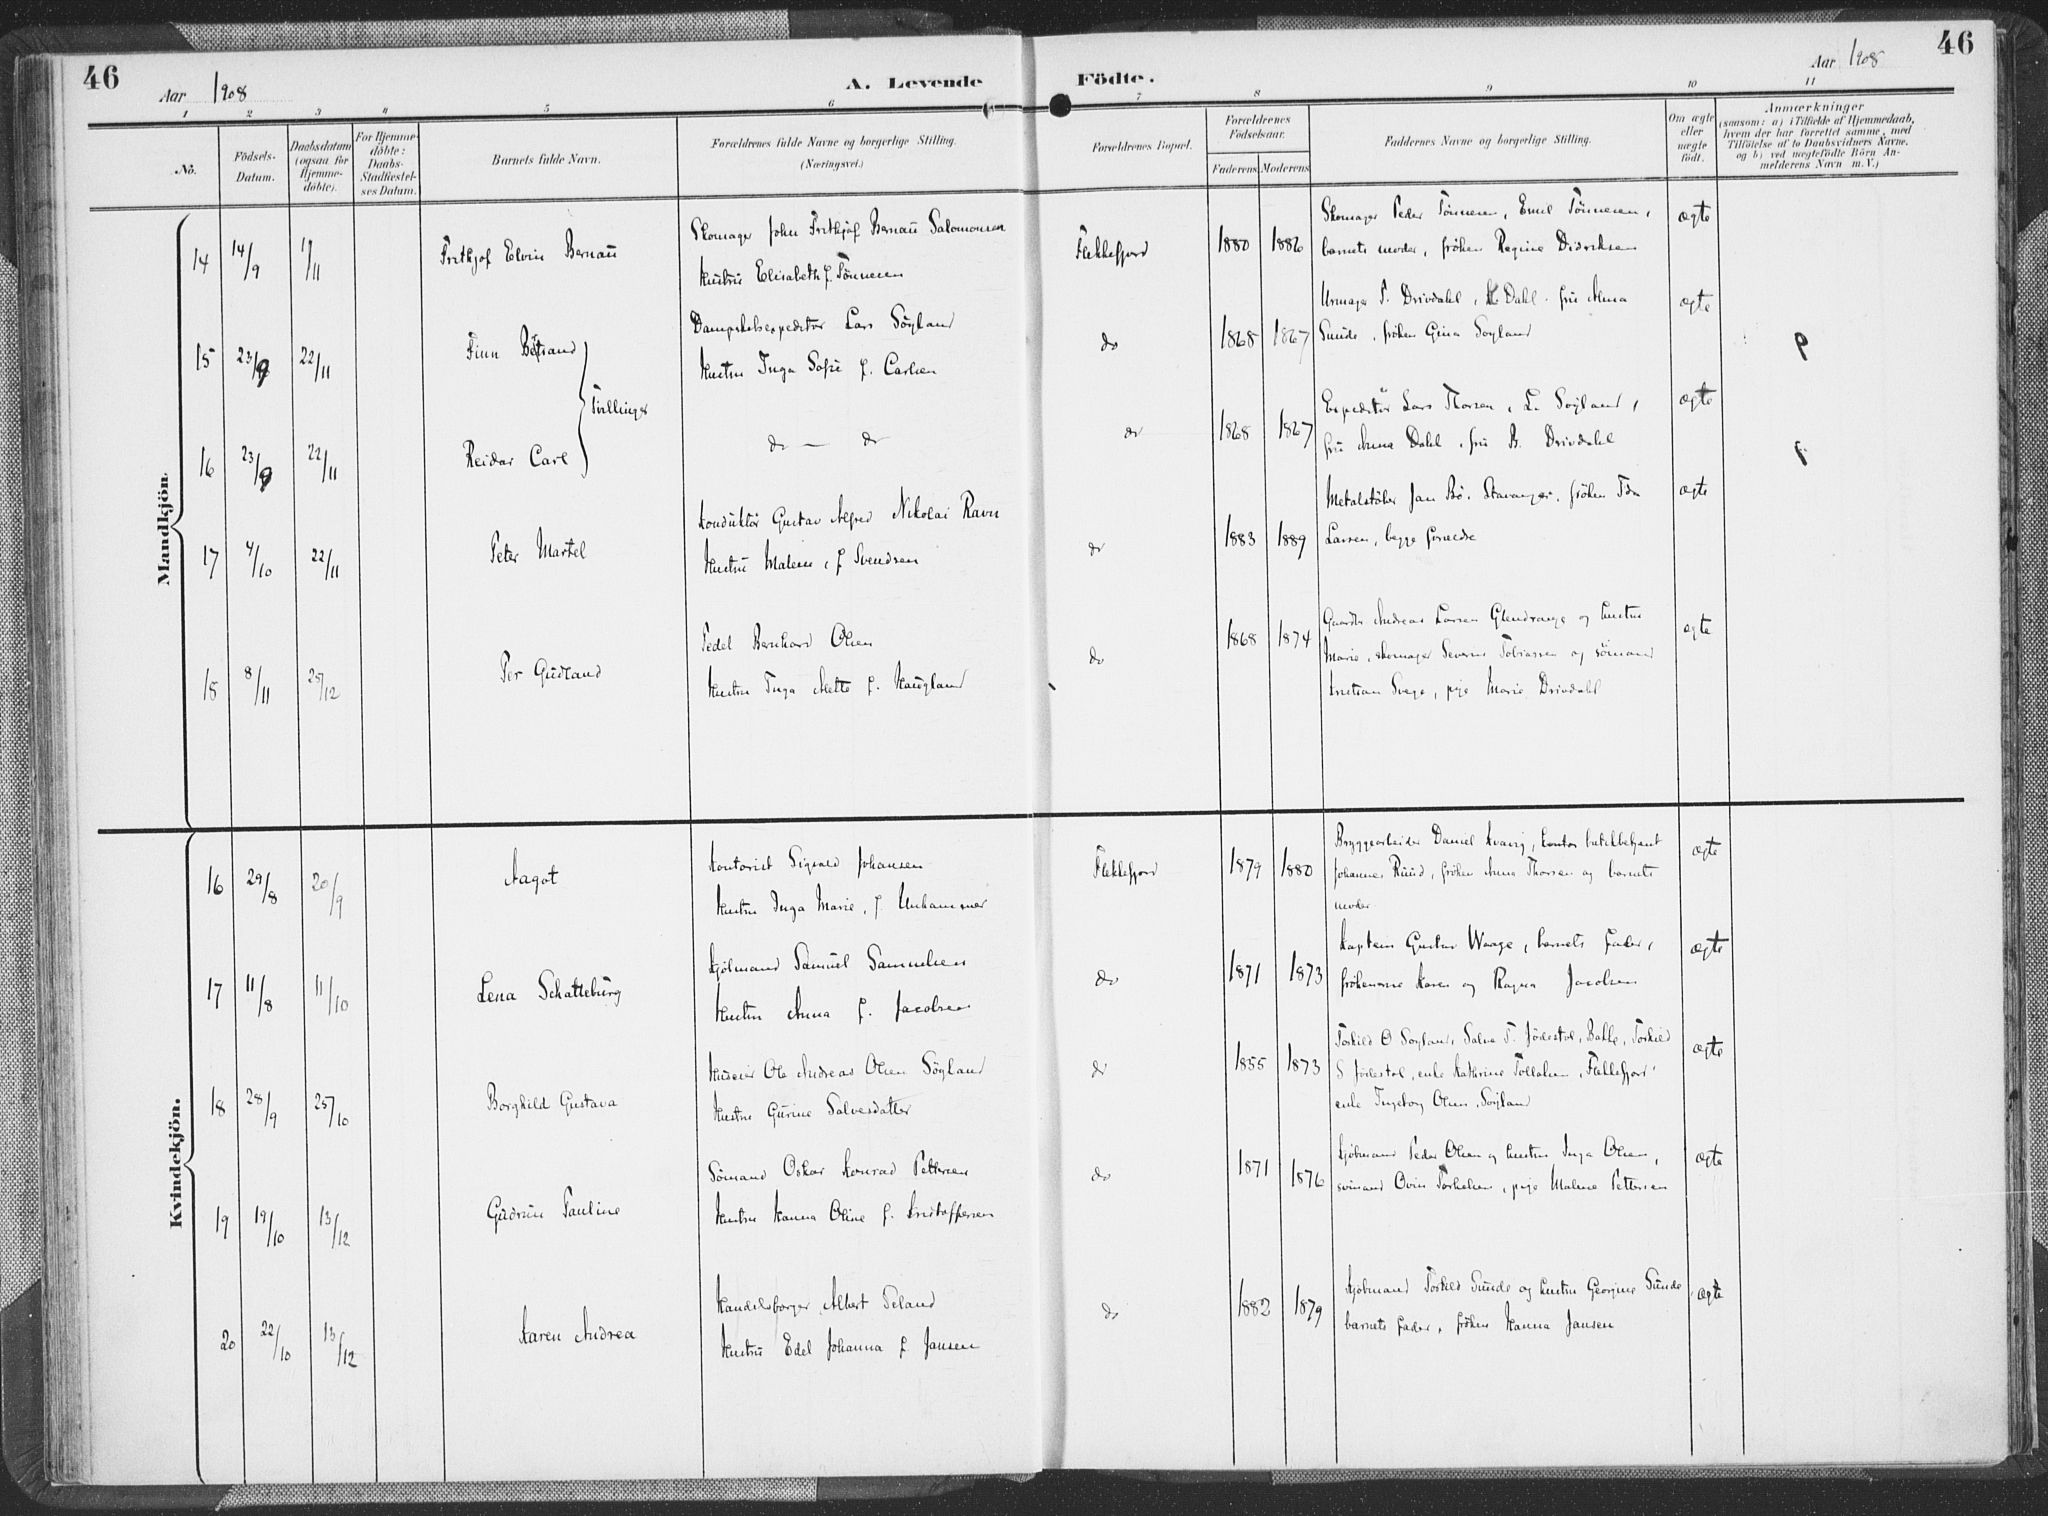 46
Aar 1908
A. Levende Födte.
Aar 1908
46
1 2 3 4 5 6 7 8 9 10 11
No.
Födsels-Datum.
Daabsdatum (ogsaa for Hjemme-döbte).
For Hjemme-döbte: Daabs-Stadfæstel-ses Datum.
Barnets fulde Navn.
Forældrenes fulde Navne og borgerlige Stilling. (Næringsvei.)
Forældrenes Bopæl.
Forældrenes Födselsaar.
Faderens Moderens
Faddernes Navne og borgerlige Stilling.
Om ægte eller uægte födt.
Anmærkninger
(saasom: a) i Tilfælde af Hjemmedaab, hvem der har forrettet samme, med Tilföielse af to Daabsvidners Navne, og b) ved uægtefödte Börn An-melderens Navn m. V.)
Mandkjön.
14 14/9 1/11 Fritkjof Elvin Bernau
Skomager John Fritkjof Bernau Salomonsen
Hustru Elisabeth f. Tönnesen
Flekkefjord 1880 1886
Skomager Peder Tönnesen, Emil Tönnesen,
barnets moder, fröken Regine Didriksen
ægte
15 23/9 22/11 Finn
Dampskibsexpeditör Lars Söyland
Hustru Inga Sofie f. Carlsen
do 1868 1867
Urmager P. Drivdahl, Dahl. fru Anna
Sunde, fröken Gina Soyland
ægte
Tvillinger
16 23/9 22/11 Reidar Carl
do — do
do 1868 1867
Expeditör Lars Thorsen, L. Soyland,
fru Anna Dahl, fru B. Drivdahl
ægte
17 4/10 22/11 Peter Martel
Konduktör Gustav Alfred Nikolai Ravn
Hustru Malene, f Svendsen
do 1883 1889
Metalstöber Jan Bö. Stavanger. fröken Ida
Larsen, begge forældre
ægte
18 8/11 25/12 Per Gudland
Pedel Bernhard Olsen
Hustru Inga Mette f. Haugland
do 1868 1874
Gaardbr Andreas Larsen Glendrange og hustru
Marie, skomager Severin Tobiassen og sömand
Kristian Svege, pige Marie Drivdahl
ægte
Kvindekjön.
16 29/8 20/9 Aagot
Kontorist Sigvald Johansen
Hustru Inga Marie, f. Unhammer
Flekkefjord 1879 1880
Bryggearbeider Daniel Kvavig, butikbetjent
Johannes Ruud, fröken Anna Thorsen og barnets
moder
ægte
17 11/8 11/10 Lena Schatteburg
Kjöbmand Samuel Samuelsen
Hustru Anna f. Jacobsen
do 1871 1873
Kaptein Gustav Waage, barnets fader,
frökenerne Karen og Ragna Jacobsen
ægte
18 28/9 25/10 Borghild Gustava
Huseier Ole Andreas Olsen Söyland
Hustru Gurine Salvesdatter
do 1855 1873
Torkild O Soyland, Salve T. Jödestol, Bakke, Torkild
S Jödestol, enke Kathrine Tollaksen, Flekkefjord,
enke Ingeborg Olsen, Soyland
ægte
19 19/10 13/12 Gudrun Pauline
Sömand Oskar Konrad Pettersen
Hustru Hanna Oline f. Kristoffersen
do 1871 1876
Kjöbmand Peder Olsen og hustru Inga Olsen,
sömand Ovin Torkelsen, pige Malene Pettersen
ægte
20 22/10 13/12 Karen Andrea
Handelsborger Albert Seland
Hustru Edel Johanna f. Jansen
do 1882 1879
Kjöbmand Torkild Sunde og hustru Georgine Sunde
barnets fader, fröken Hanna Jansen
ægte